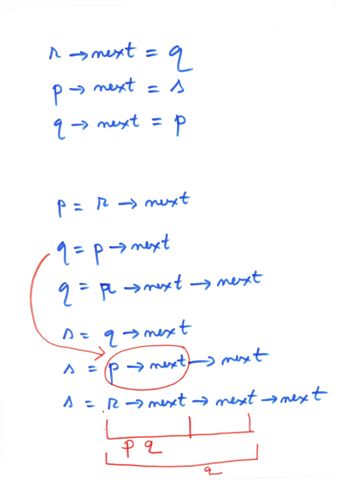 r → next = q
p → next = s
q → next = p
p = r → next
q = p → next
q = r → next → next
s = q → next
s = p → next → next
s = r → next → next → next
p q
q